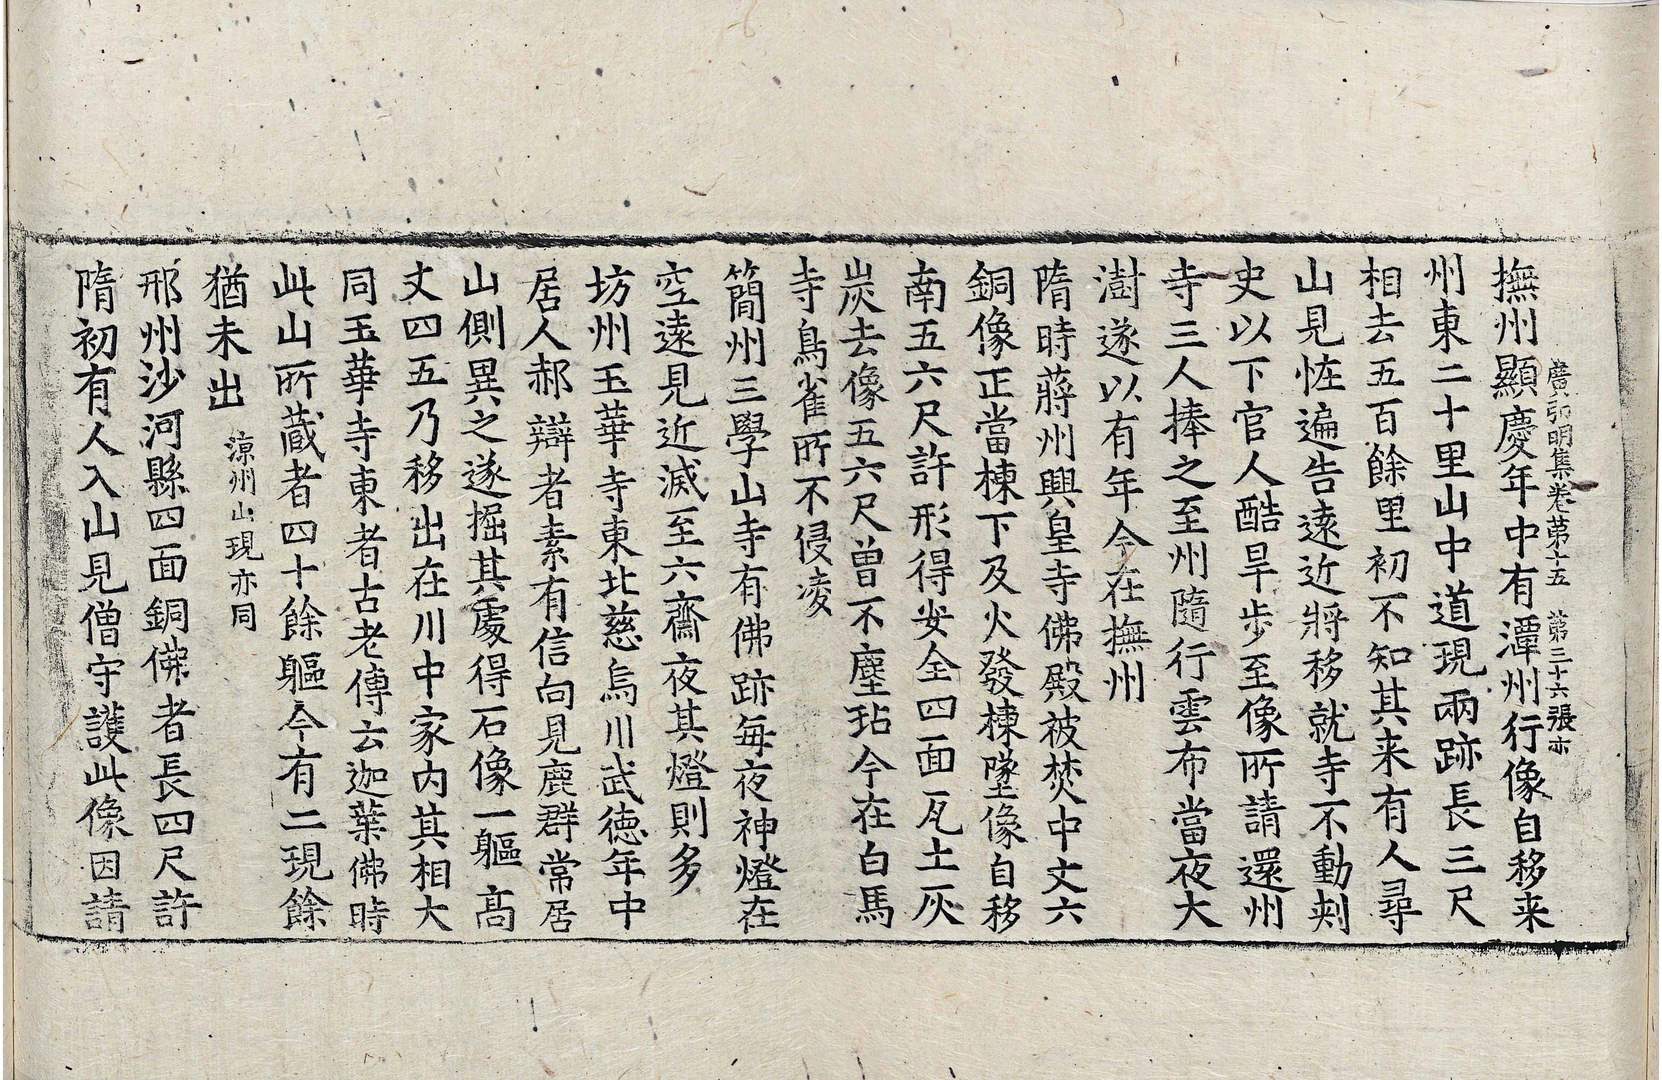 廣弘明集卷第十五　第三十六張亦
撫州顯慶年中有潭州行像自移来
州東二十里山中道現兩跡長三尺
相去五百餘里初不知其来有人尋
山見恠遍告遠近將移就寺不動刺
史以下官人酷旱步至像所請還州
寺三人捧之至州隨行雲布當夜大
澍遂以有年今在撫州
隋時蔣州興皇寺佛殿被焚中丈六
銅像正當棟下及火發棟墜像自移
南五六尺許形得安全四面瓦土灰
炭去像五六尺曽不塵玷今在白馬
寺鳥雀所不侵凌
簡州三學山寺有佛跡每夜神燈在
空遠見近滅至六齋夜其燈則多
坊州玉華寺東北慈烏川武德年中
居人郝辯者素有信向見鹿群常居
山側異之遂掘其處得石像一軀高
丈四五乃移出在川中家内其相大
同玉華寺東者古老傳云迦葉佛時
此山所藏者四十餘軀今有二現餘
猶未出　涼州山現亦同
邢州沙河縣四面銅佛者長四尺許
隋初有人入山見僧守護此像因請